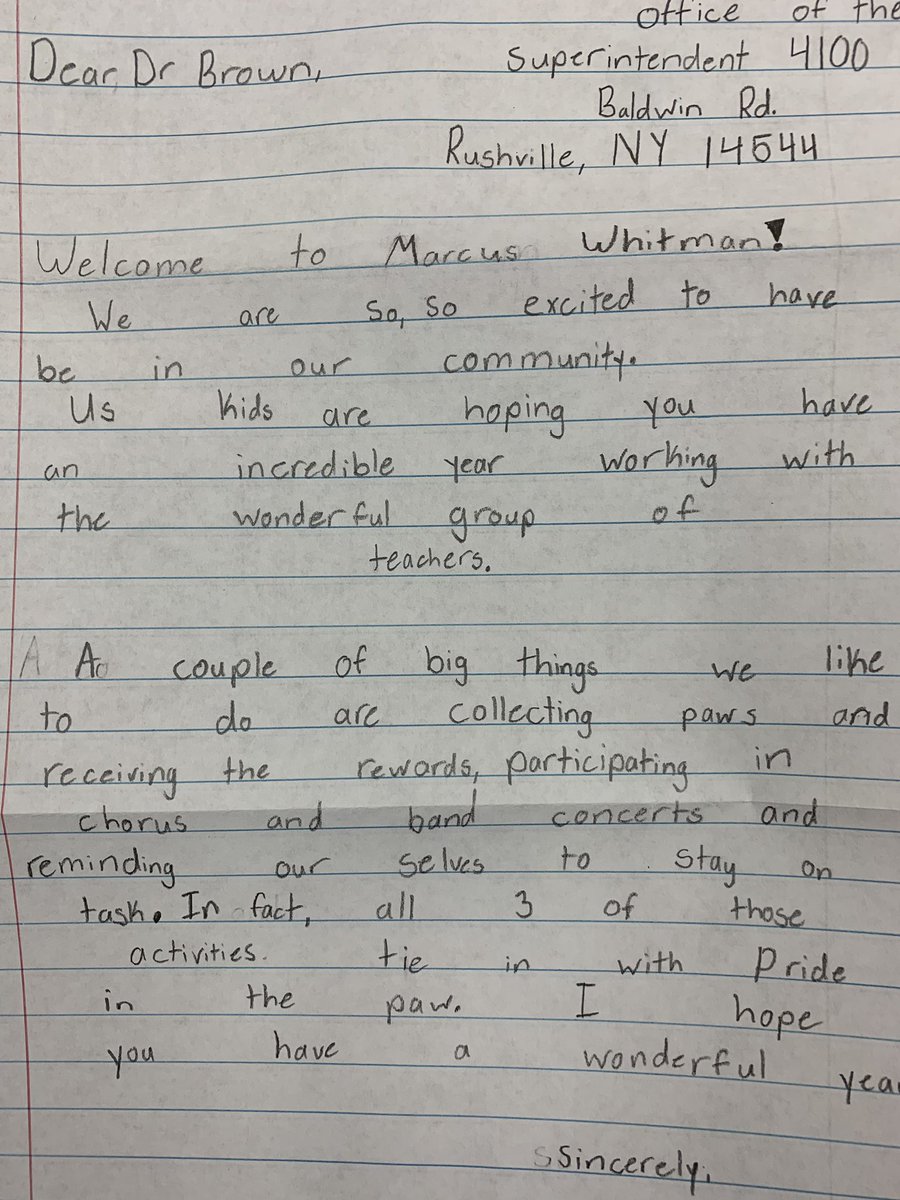 office of the
Dear, Dr Brown,
Superintendent 4100
Baldwin Rd.
Rushville, NY 14544
Welcome to Marcus Whitman!
We are so, so excited to have
be in our community.
Us kids are hoping you have
an incredible year working with
the wonderful group of
teachers.
A A couple of big things we like
to do are collecting paws and
receiving the rewards, participating in
chorus and band concerts and
reminding our selves to stay on
task. In fact, all 3 of those
activities. tie in with Pride
in the paw. I hope
you have a wonderful yea
sSincerely,